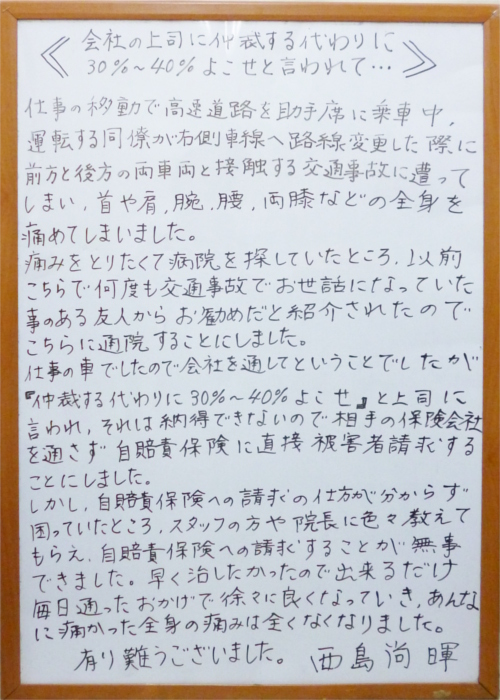 《会社の上司に仲裁する代わりに
30%～40%よこせと言われて…》
仕事の移動で高速道路を助手席に乗車中，
運転する同僚が右側車線へ路線変更した際に
前方と後方の両車両と接触する交通事故に遭って
しまい，首や肩，腕，腰，両膝などの全身を
痛めてしまいました。
痛みをとりたくて病院を探していたところ，以前
こちらで何度も交通事故でお世話になっていた
事のある友人からお勧めだと紹介されたので
こちらに通院することにしました。
仕事の車でしたので会社を通してということでしたが
『仲裁する代わりに30%～40%よこせ』と上司に
言われ，それは納得できないので相手の保険会社
を通さず自賠責保険に直接被害者請求する
ことにしました。
しかし，自賠責保険への請求の仕方が分からず
困っていたところ，スタッフの方や院長に色々教えて
もらえ，自賠責保険への請求することが無事
できました。早く治したかったので出来るだけ
毎日通ったおかげで徐々に良くなっていき，あんな
に痛かった全身の痛みは全くなくなりました。
有り難うございました。 西島尚暉